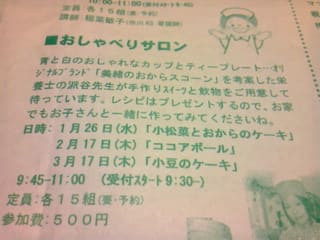 10:00-11:00(受付
定員 各15組(要・予約)
講師 稲葉敏子
■おしゃべりサロン
青と白のおしゃれなカップとティープレート…オ
リジナルブランド「美緒のおからスコーン」を考案した栄
養士の派谷先生が手作りスイーツと飲物をご用意して
待っています。レシピはプレゼントするので、お家
でもお子さんと一緒に作ってみてくださいね。
日時:1月26日(水)「小松菜とおからのケーキ」
2月17日(木)「ココアボール」
3月17日(木)「小豆のケーキ」
9:45-11:00 (受付スタート9:30-)
定員:各15組(要・予約)
参加費:500円